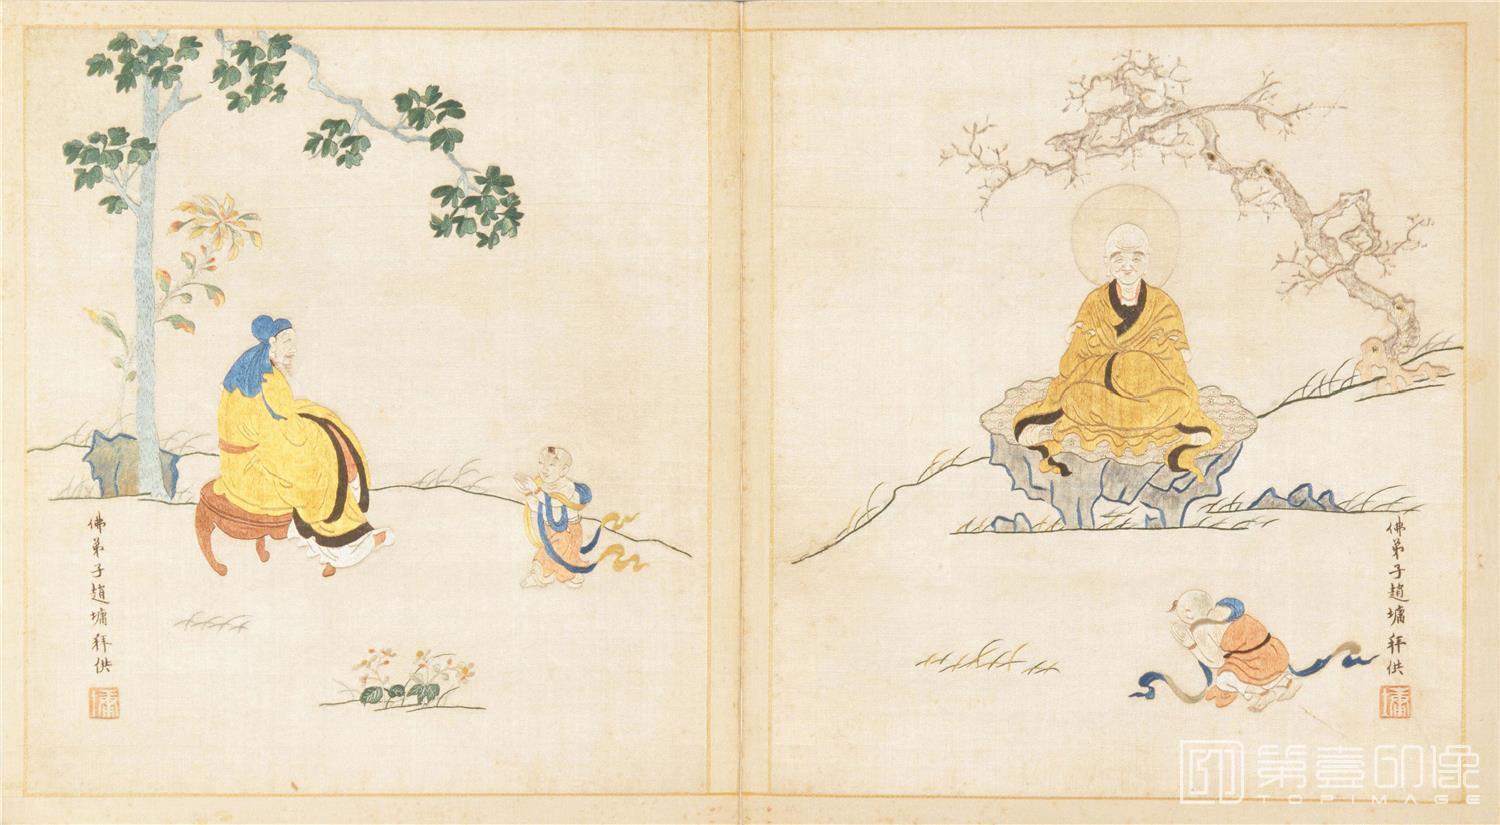 佛弟子趙墉拜供
墉
佛弟子趙墉拜供
墉
第壹印像
TOPIMAGE